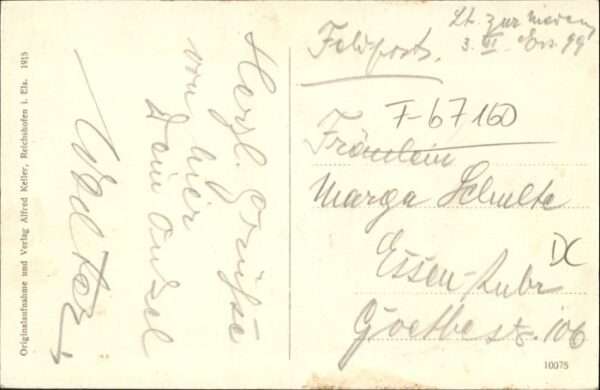 Originalaufnahme und Verlag Alfred Keller, Reichshofen i. Els. 1915
Herzl. Grüsse
von hier
Dein Onkel
Walter
Feldpost.
Lt. zur
3. VI. 99
F-67160
Fräulein
Marga Schulte
Essen-Ruhr
DC
Goethestr. 106
10075